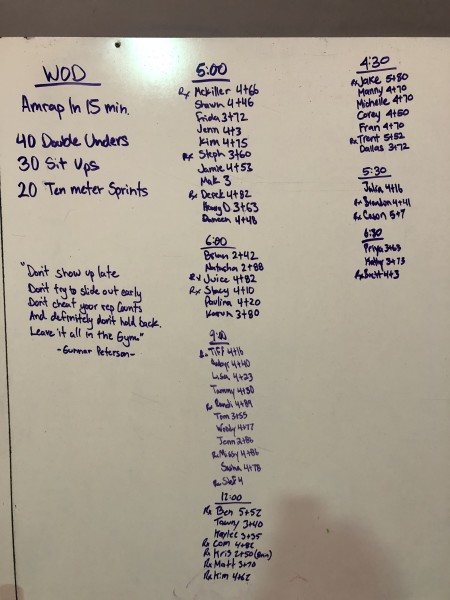 WOD
Amrap In 15 min.
40 Double Unders
30 Sit Ups
20 Ten meter Sprints
"Don't show up late
Don't try to slide out early
Don't cheat your rep counts
And definitely don't hold back.
Leave it all in the Gym."
-Gunnar Peterson-
5:00
Rx Mckiller 4+66
Shawn 4+46
Frida 3+72
Jenn 4+3
Kim 4+75
Rx Steph 3+60
Jamie 4+53
Mak 3
Rx Derek 4+82
Henry D 3+63
Dameen 4+48
6:00
Brian 2+42
Natasha 2+88
Rx Juice 4+82
Rx Stacy 4+10
Paulina 4+20
Karun 3+80
9:00
Rx Tiff 4+16
4+40
Lisa 4+23
Tammy 4+30
Rx Randi 4+89
Tom 3+55
Woody 4+77
Jenn 2+86
Rx Missy 4+86
4+78
Rx 4
12:00
Rx Ben 5+52
Tawny 3+40
Kaylee 3+35
Rx Com 4+82
Rx Kris 2+50
Rx Matt 3+70
Rx Kim 4+62
4:30
Rx Jake 5+80
Manny 4+70
Michelle 4+70
Corey 4+50
Fran 4+70
Rx Trent 5+52
Dallas 3+72
5:30
Julia 4+16
Rx Brandon 4+41
Rx Cason 5+7
6:30
Priya 3+63
Kathy 3+75
Rx Brett 4+3